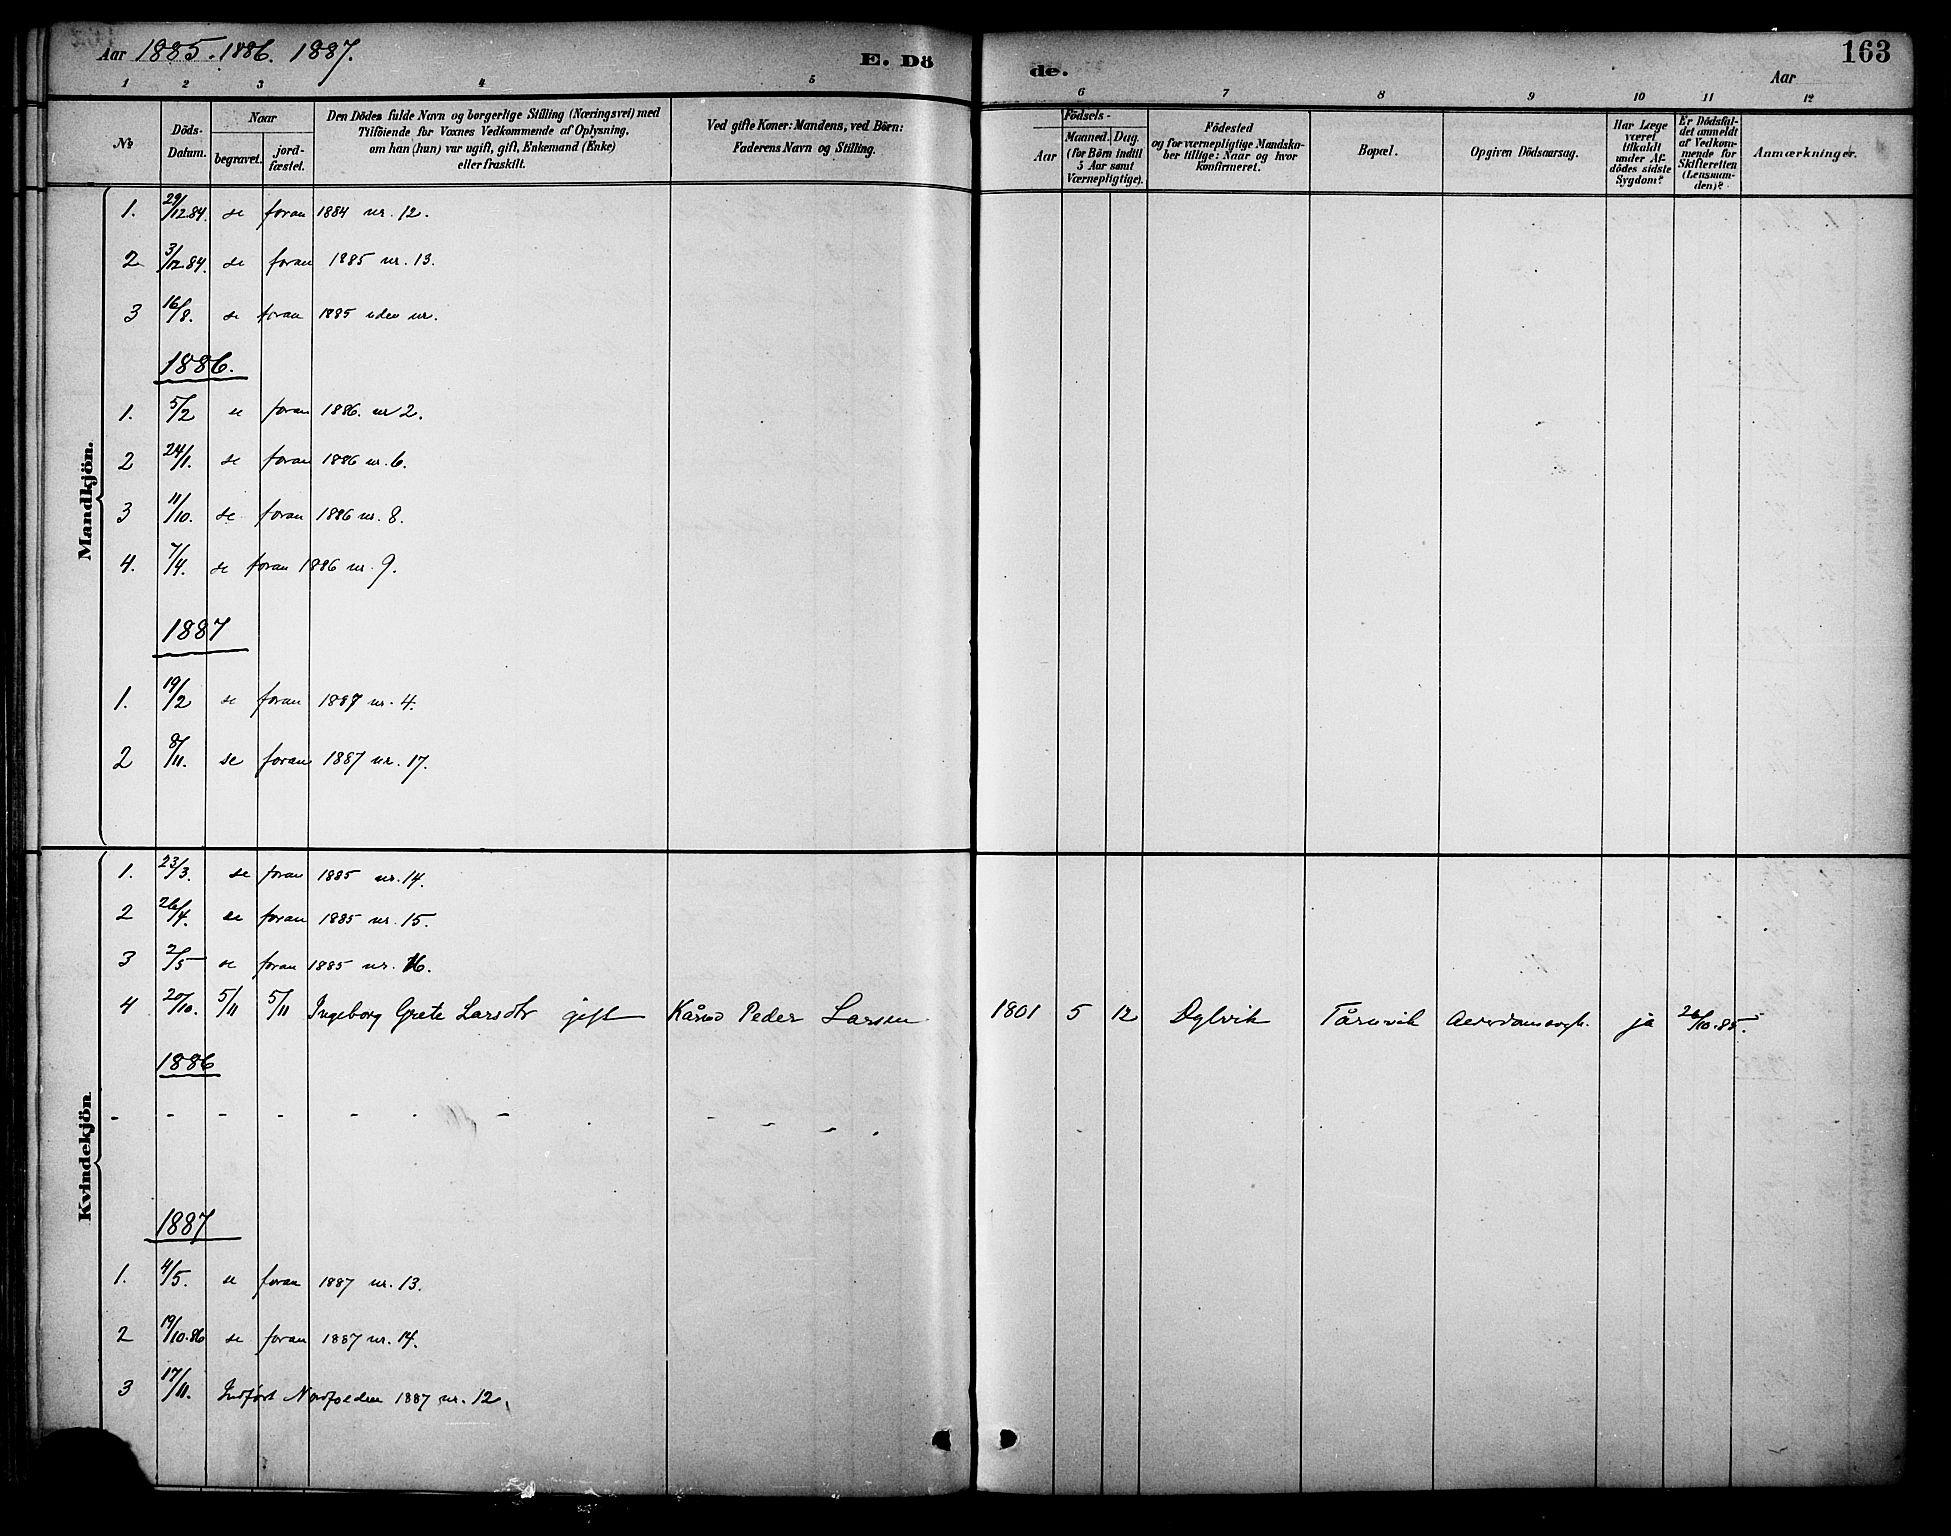 Aar 1885. 1886. 1887.
E. Dö
de.
Aar
163
1 2 3 4 5 6 7 8 9 10 11 12
No
Döds-Datum.
Naar
begravet.
jordfæstet.
Den Dödes fulde Navn og borgerlige Stilling (Næringsvei) med
Tilföiende for Voxnes Vedkommende af Oplysning,
om han (hun) var ugift, gift, Enkemand (Enke)
eller fraskilt.
Ved gifte Koner: Mandens, ved Börn:
Faderens Navn og Stilling.
Födsels-
Aar
Maaned. Dag.
(for Börn indtil
5 Aar samt
Værnepligtige).
Födested
og for værnepligtige Mandska-
ber tillige: Naar og hvor
konfirmeret.
Bopæl.
Opgiven Dödsaarsag.
Har Læge
været
tilkaldt
under Af-
dödes sidste
Sygdom?
Er Dödsfal-
det anmeldt
af Vedkom-
mende for
Skifteretten
(Lensman-
den)?
Anmærkninger.
Mandkjön.
1. 29/12 84. se foran 1884 nr. 12.
2 3/12 84. se foran 1885 nr. 13.
3 16/8. se foran 1885 uden nr.
1886.
1. 5/2 se foran 1886. nr 2.
2 24/1. se foran 1886 nr. 6.
3 11/10. se foran 1886 nr. 8.
4. 7/4. se foran 1886 nr. 9.
1887
1. 19/2 se foran 1887 nr. 4.
2 8/11. se foran 1887 nr. 17.
Kvindekjön
1. 23/3. se foran 1885 nr. 14.
2 26/4. se foran 1885 nr. 15.
3 2/5 se foran 1885 nr. 16.
4 20/10. 5/11 5/11 Ingeborg Grete Larsdtr gift Peder Larsen 1801 5 12 Dylvik Tårnvik ja 26/10. 85.
1886
- - - - - - - - - - -
1887
1. 4/5. se foran 1887 nr. 13.
2 19/10. 86 se foran 1887 nr. 14.
3 17/11. Indført Nordfolden 1887 nr. 12.